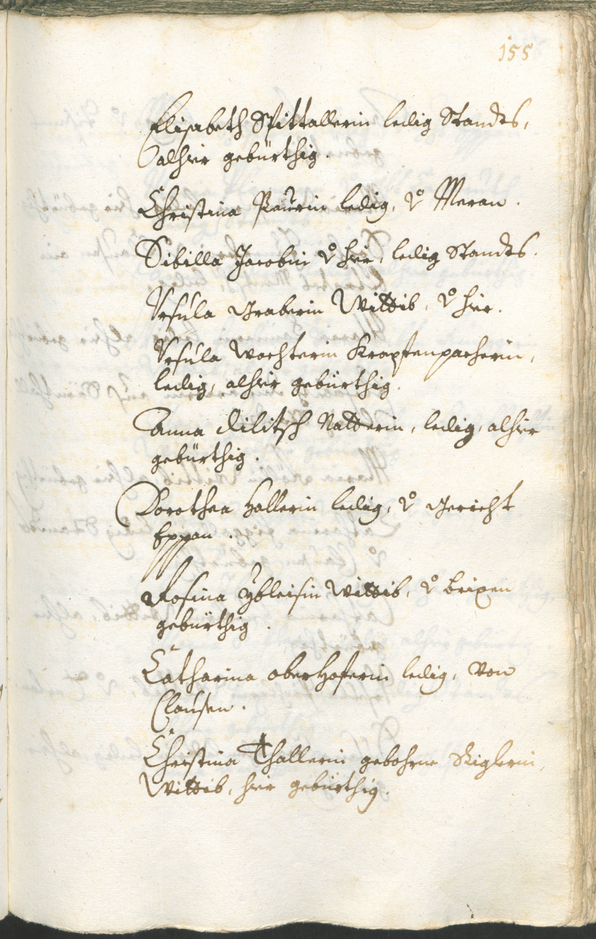 155
Elisabeth Spittallerin ledig Standts,
alhir gebürthig.
Christina Paurin ledig, v Meran.
Sibilla Jacobin v hir, ledig Standts.
Ursula Graberin Wittib, v hir.
Ursula Wachterin Krapfenpacherin,
ledig, alhir gebürthig.
Anna Dilitsch Natterin, ledig, alhir
gebürthig.
Dorothea Hallerin ledig, v Gericht
Eppan.
Rosina Wittib, v Brixen
gebürthig.
Catharina oberhoferin ledig, von
Clausen.
Christina Thallerin gebohrne Riglerin,
Wittib, hir gebürthig.